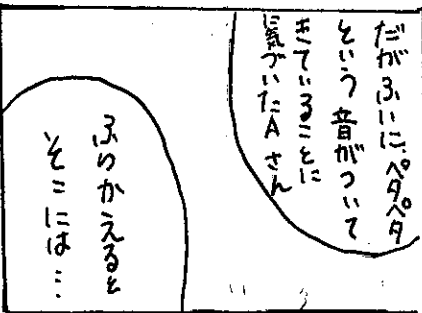 だがふいに、ペタペタ
という音がついて
きていることに
気づいたAさん
ふりかえると
そこには…